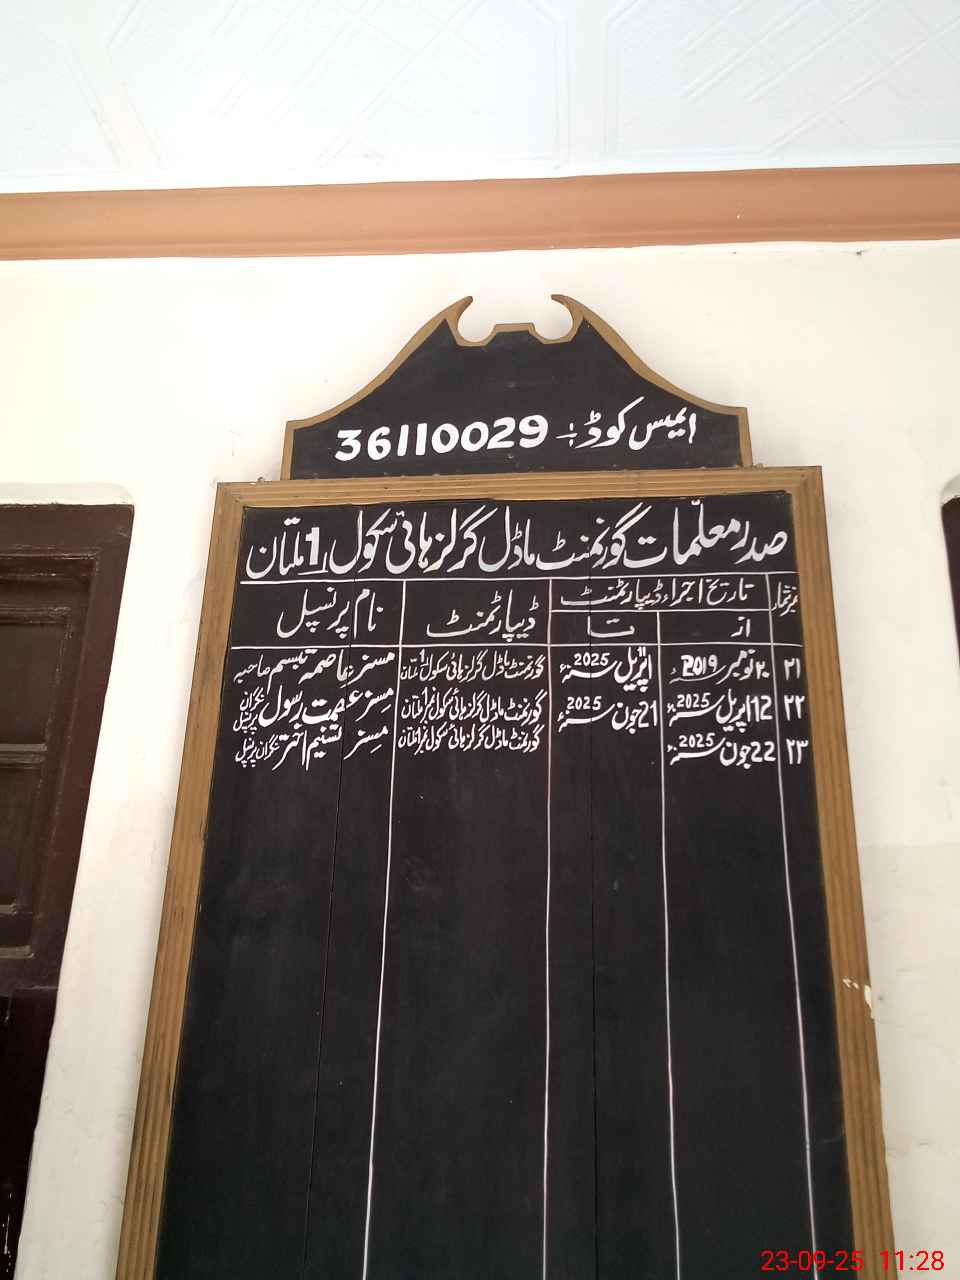 ایمیس کوڈ:- 36110029
صدر معلّمات گورنمنٹ ماڈل گرلز ہائی سکول 1 ملتان
نمبر شمار تاریخ اجراء ڈیپارٹمنٹ ڈیپارٹمنٹ نام پرنسپل
از تا
۲۱ ۲۰ نومبر 2019ء 11 اپریل 2025ء گورنمنٹ ماڈل گرلز ہائی سکول نمبر 1 ملتان مسز عاصمہ تبسم صاحبہ
۲۲ 12 اپریل 2025ء 21 جون 2025ء گورنمنٹ ماڈل گرلز ہائی سکول نمبر 1 ملتان مسز عصمت رسول نگران پرنسپل
۲۳ 22 جون 2025ء گورنمنٹ ماڈل گرلز ہائی سکول نمبر 1 ملتان مسز تسنیم اختر نگران پرنسپل
23-09-25 11:28